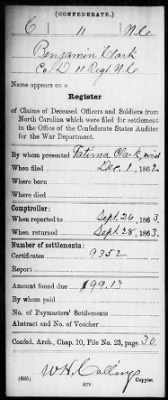 (CONFEDERATE.)
C 11 N.C.
Benjamin Clark
Co. D 11 Regt N.C.
Name appears on a
Register
of Claims of Deceased Officers and Soldiers from
North Carolina which were filed for settlement
in the Office of the Confederate States Auditor
for the War Department.
By whom presented Clark, wid
When filed Dec. 1, 1862
Where born
Where died
Comptroller:
When reported to Sept. 26, 1863.
When returned Sept. 28, 1863.
Number of settlements:
Certificates 9352
Report
Amount found due $99.13
By whom paid
No. of Paymasters' Settlements
Abstract and No. of Voucher
Confed. Arch., Chap. 10, File No. 23, page 30
W.H. Collings
(635) Copyist.